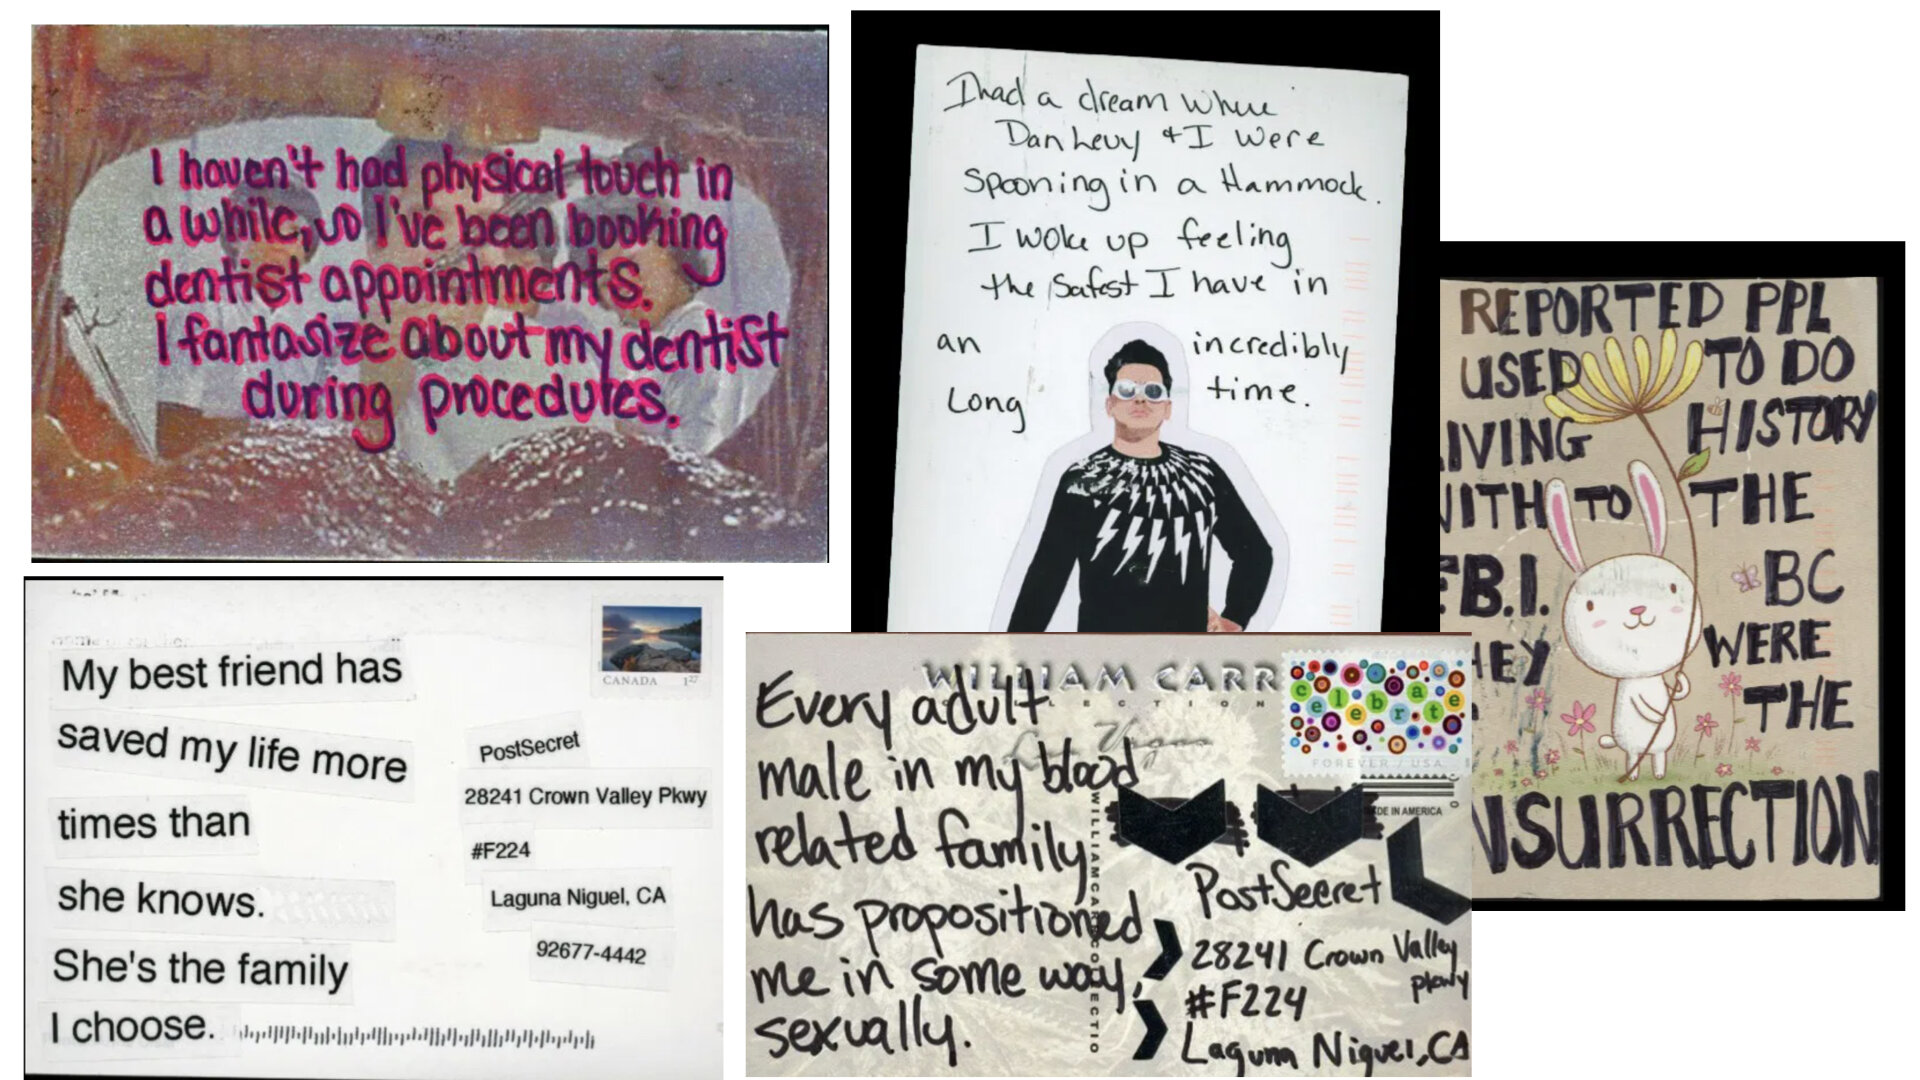 I haven't had physical touch in
a while, so I've been booking
dentist appointments.
I fantasize about my dentist
during procedures.
I had a dream where
Dan Levy & I were
Spooning in a Hammock.
I woke up feeling
the safest I have in
an incredibly
Long time.
REPORTED PPL
USED TO DO
IVING HISTORY
WITH TO THE
F.B.I. BC
HEY WERE
THE
NSURRECTION
My best friend has
saved my life more
times than
she knows.
She's the family
I choose.
CANADA 1²⁷
PostSecret
28241 Crown Valley Pkwy
#F224
Laguna Niguel, CA
92677-4442
WILLIAM CARR
COLLECTION
Las Vegas
Every adult
male in my blood
related family
has propositioned
me in some way,
sexually.
celebrate
FOREVER / USA
MADE IN AMERICA
WILLIAM CARR COLLECTIO
PostSecret
28241 Crown Valley
pkwy
#F224
Laguna Niguel, CA